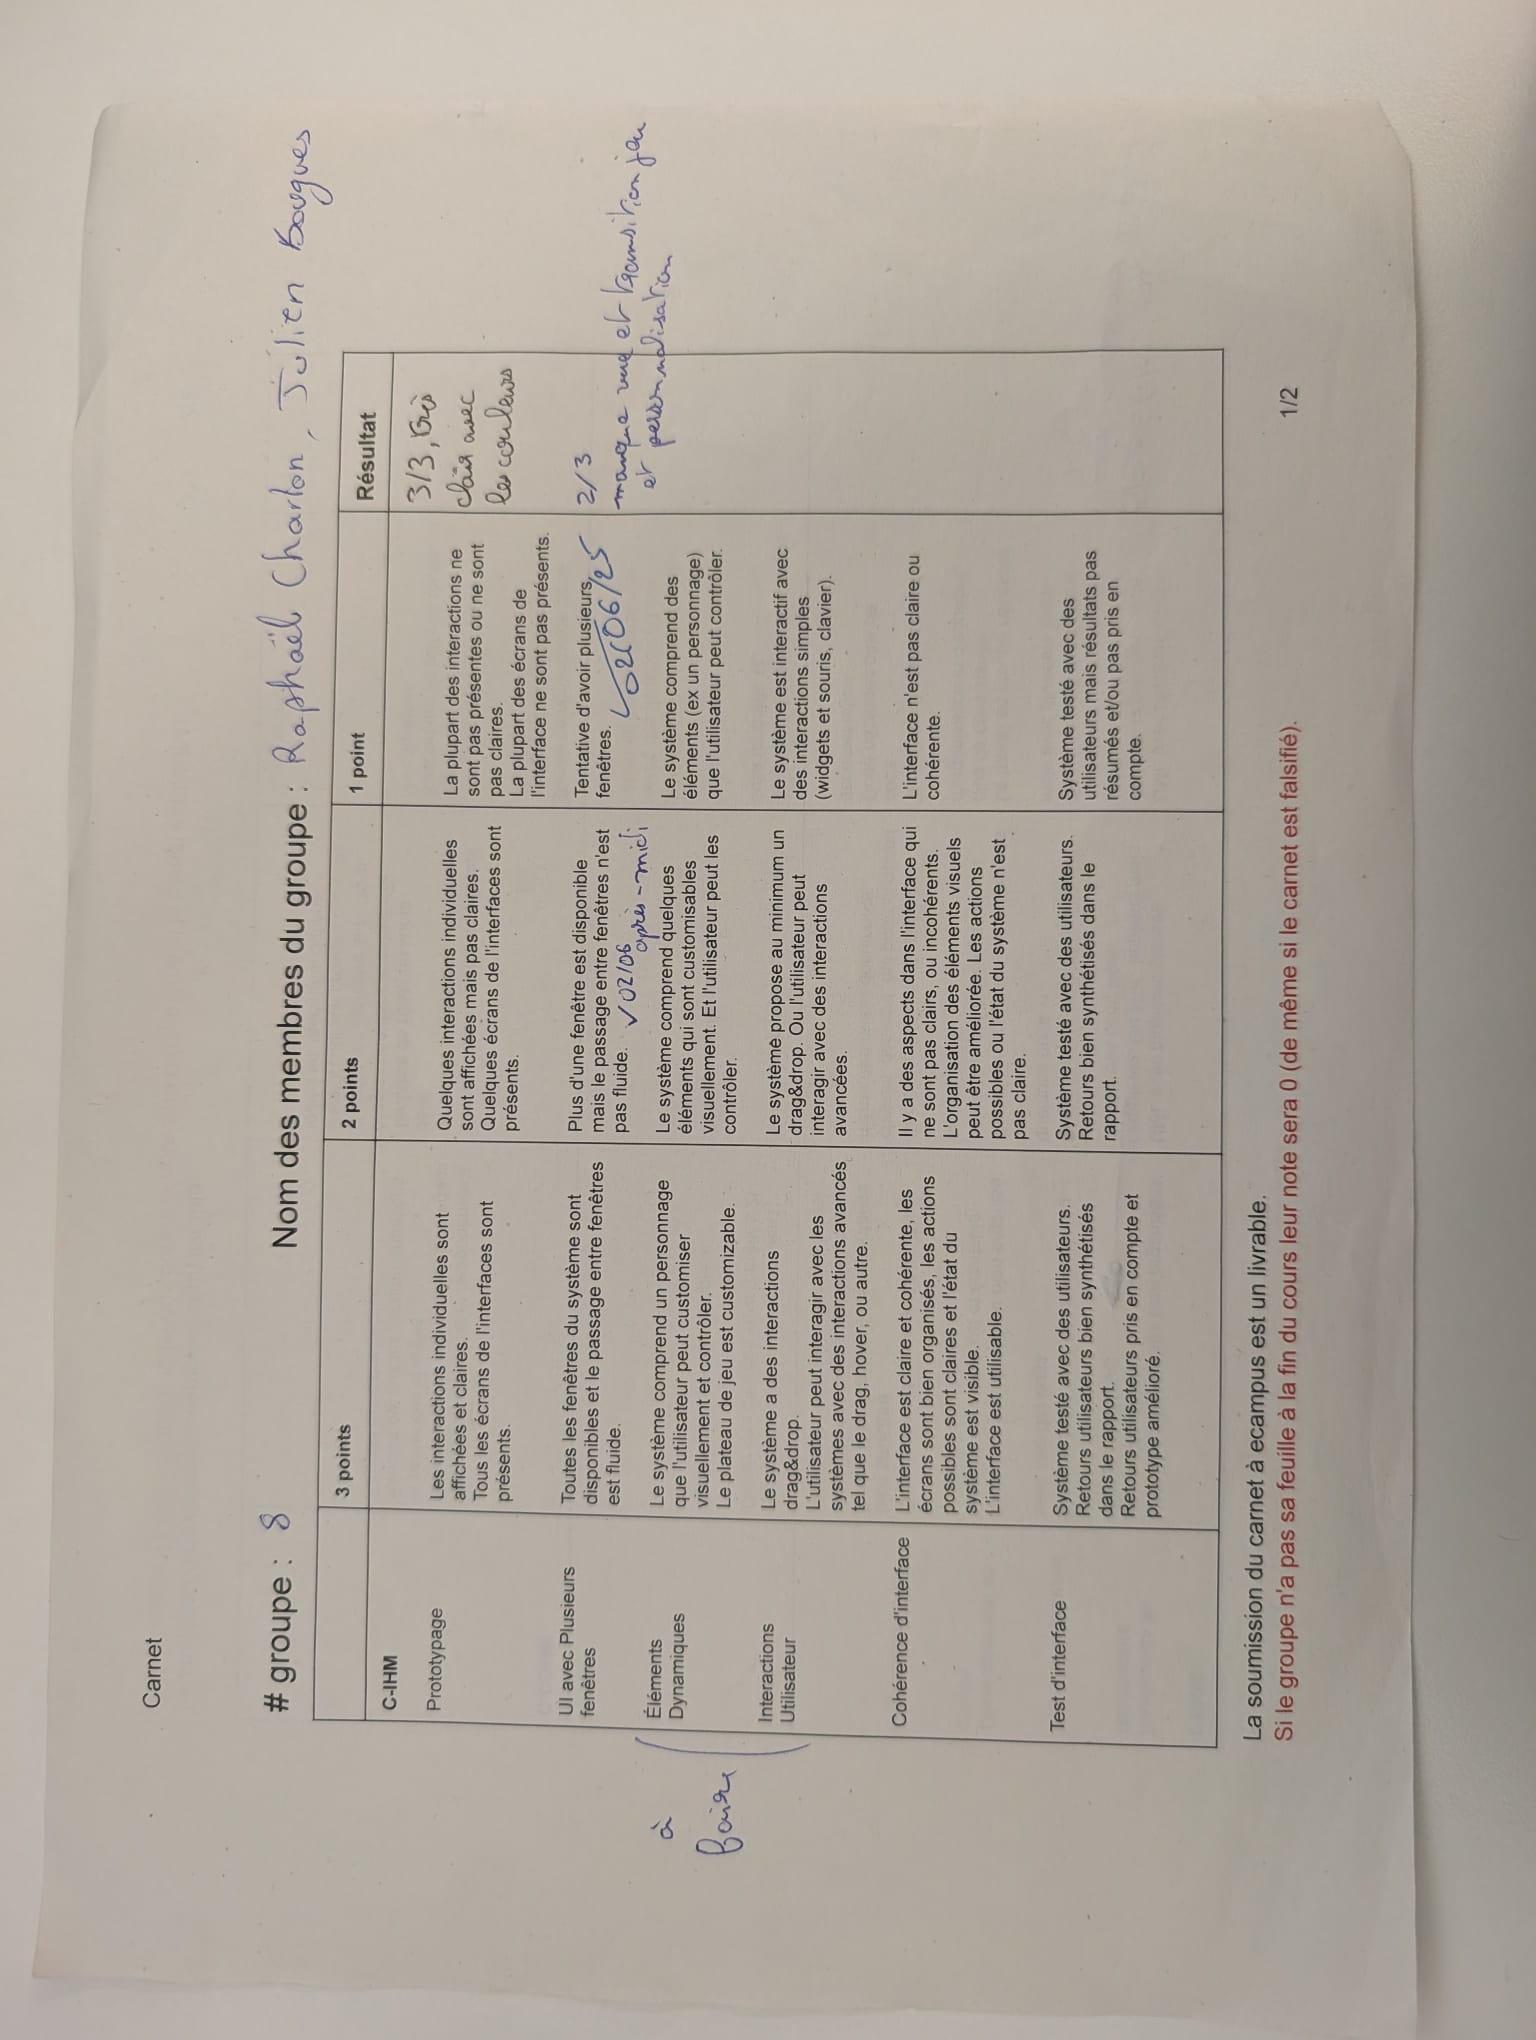 Carnet
# groupe : 8
Nom des membres du groupe : Raphaël Charlon, Julien Bougues
3 points
2 points
1 point
Résultat
C-IHM
Prototypage
Les interactions individuelles sont
affichées et claires.
Tous les écrans de l'interfaces sont
présents.
Quelques interactions individuelles
sont affichées mais pas claires.
Quelques écrans de l'interfaces sont
présents.
La plupart des interactions ne
sont pas présentes ou ne sont
pas claires.
La plupart des écrans de
l'interface ne sont pas présents.
3/3, très
clair avec
les couleurs
UI avec Plusieurs
fenêtres
Toutes les fenêtres du système sont
disponibles et le passage entre fenêtres
est fluide.
Plus d'une fenêtre est disponible
mais le passage entre fenêtres n'est
pas fluide.
✓ 02/06
après-midi
Tentative d'avoir plusieurs
fenêtres.
02/06/25
2/3
manque et transition jeu
et personnalisation
à
faire
Éléments
Dynamiques
Le système comprend un personnage
que l'utilisateur peut customiser
visuellement et contrôler.
Le plateau de jeu est customizable.
Le système comprend quelques
éléments qui sont customisables
visuellement. Et l'utilisateur peut les
contrôler.
Le système comprend des
éléments (ex un personnage)
que l'utilisateur peut contrôler.
Interactions
Utilisateur
Le système a des interactions
drag&drop.
L'utilisateur peut interagir avec les
systèmes avec des interactions avancés
tel que le drag, hover, ou autre.
Le système propose au minimum un
drag&drop. Ou l'utilisateur peut
interagir avec des interactions
avancées.
Le système est interactif avec
des interactions simples
(widgets et souris, clavier).
Cohérence d'interface
L'interface est claire et cohérente, les
écrans sont bien organisés, les actions
possibles sont claires et l'état du
système est visible.
L'interface est utilisable.
Il y a des aspects dans l'interface qui
ne sont pas clairs, ou incohérents.
L'organisation des éléments visuels
peut être améliorée. Les actions
possibles ou l'état du système n'est
pas claire.
L'interface n'est pas claire ou
cohérente.
Test d'interface
Système testé avec des utilisateurs.
Retours utilisateurs bien synthétisés
dans le rapport.
Retours utilisateurs pris en compte et
prototype amélioré.
Système testé avec des utilisateurs.
Retours bien synthétisés dans le
rapport.
Système testé avec des
utilisateurs mais résultats pas
résumés et/ou pas pris en
compte.
La soumission du carnet à ecampus est un livrable.
Si le groupe n'a pas sa feuille à la fin du cours leur note sera 0 (de même si le carnet est falsifié).
1/2